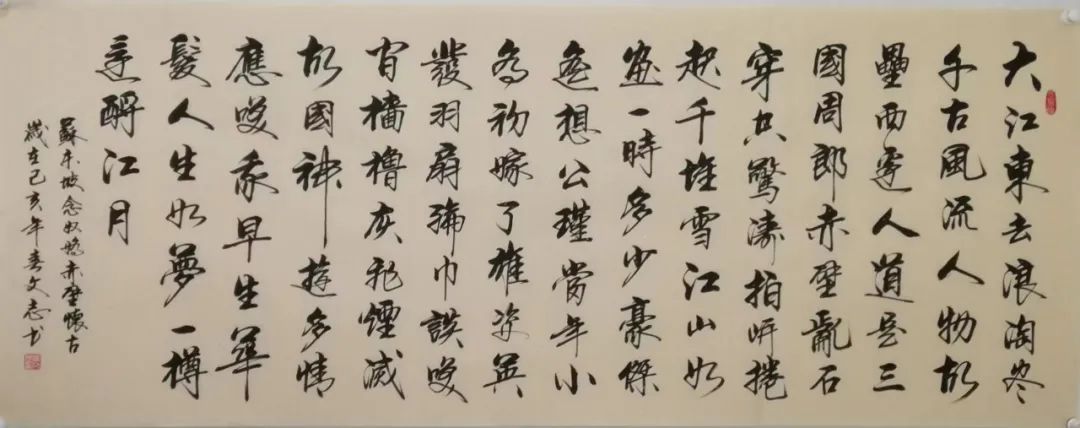 大江東去浪淘尽
千古風流人物故
壘西邊人道是三
國周郎赤壁亂石
穿空驚濤拍岸捲
起千堆雪江山如
畫一時多少豪傑
遙想公瑾當年小
喬初嫁了雄姿英
發羽扇綸巾談笑
間檣櫓灰飛煙滅
故國神遊多情
應笑我早生華
髮人生如夢一樽
還酹江月
蘇東坡念奴嬌赤壁懷古
歲在己亥年春文志书